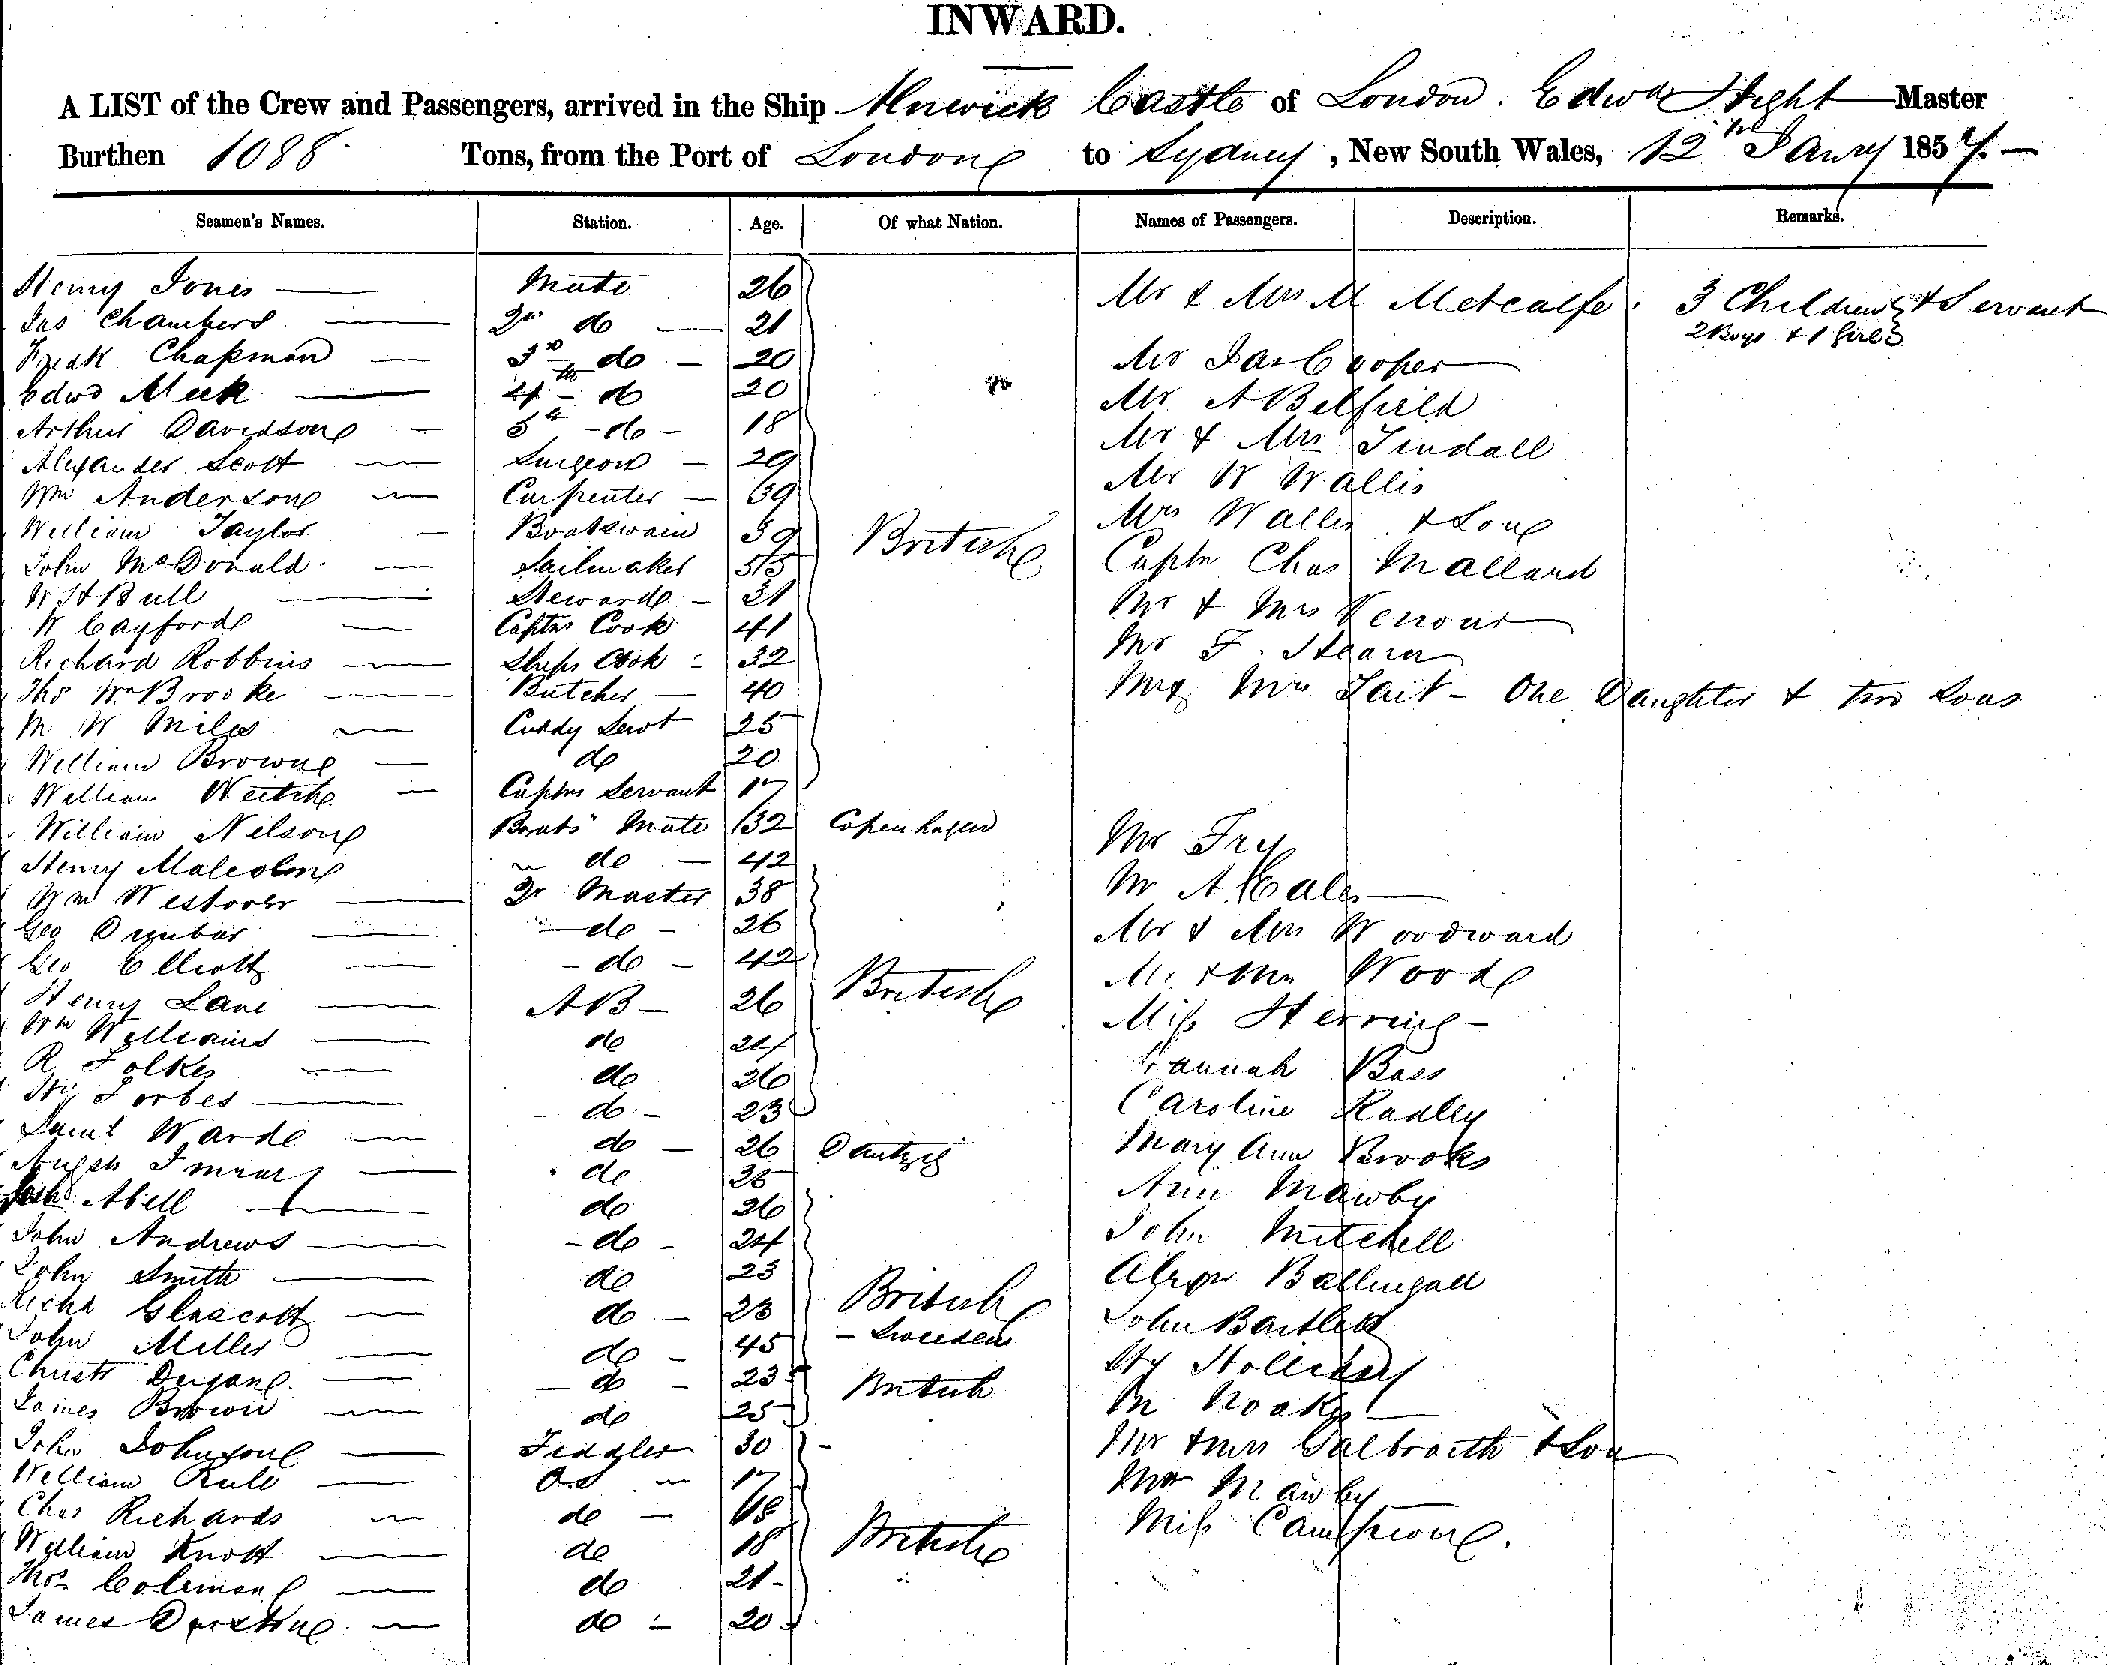 INWARD.
A LIST of the Crew and Passengers, arrived in the Ship Alnwick Castle of London. Edwd Hight Master
Burthen 1088 Tons, from the Port of London to Sydney, New South Wales, 12th Jany 1857.
Seamen's Names. Station. Age. Of what Nation. Names of Passengers. Description. Remarks.
Henry Jones Mate 26 Mr & Mrs M Metcalfe. 3 Children & Servant
Jas Chambers 2nd do 21 2 Boys & 1 Girl
Fredk Chapman 3rd do 20 Mr Jas Cooper
Edwd Meek 4th do 20 Mr A Belfield
Arthur Davidson 5th do 18 Mr & Mrs Tindall
Alexander Scott Surgeon 29 Mr W Wallis
Wm Anderson Carpenter 39 Mrs Wallis & Son
William Taylor Boatswain 39 British
John McDonald Sailmaker 55 Captn Chas Mallard
W H Bull Steward 31 Mr & Mrs
W Cayford Captns Cook 41 Mr F. Hearn
Richard Robbins Ships Cook 32
Thos Wm Brooke Butcher 40 Mr & Mrs Tait - One Daughter & two Sons
M W Miles Cuddy Servt 25
William Brown do 20
William Veitch Captns Servant 17
William Nelson Boats Mate 32 Copenhagen Mr Fry
Henry Malcolm do 42
Wm Westover Qr Master 38 Mr A. Cales
Geo Dunbar do 26 Mr & Mrs Woodward
Geo Elliott do 42 British Mr & Mrs Wood
Henry Lane AB 26 Miss Herring
Wm Williams do 24
R Folkes do 26 Hannah Bass
Hy Forbes do 23 Caroline Radley
Saml Ward do 26 Dantzig Mary Ann Brooks
Angus do
Abell do 26 Ann Mawby
John Andrews do 24 John Mitchell
John Smith do 23 British Alexr Ballingall
Richd Glascott do 23 John Bartlett
John Miller do 45 Sweden Hy Holliday
Christr do 23 British M Noakes
James Brown do 25
John Johnson Fiddler 30 Mr & Mrs Galbraith & Son
William Rule O.S 17 Mawby
Chas Richards do 18 British Miss Campion.
William Knott do 18
Thos Coleman do 21
James do 20